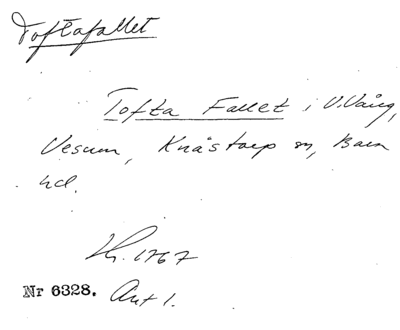 Toftafallet
Tofta Fallet i V.Vång,
Vesum, Knåstorp sn, Bara
hd.
Kr. 1767
Nr 6328. Akt 1.